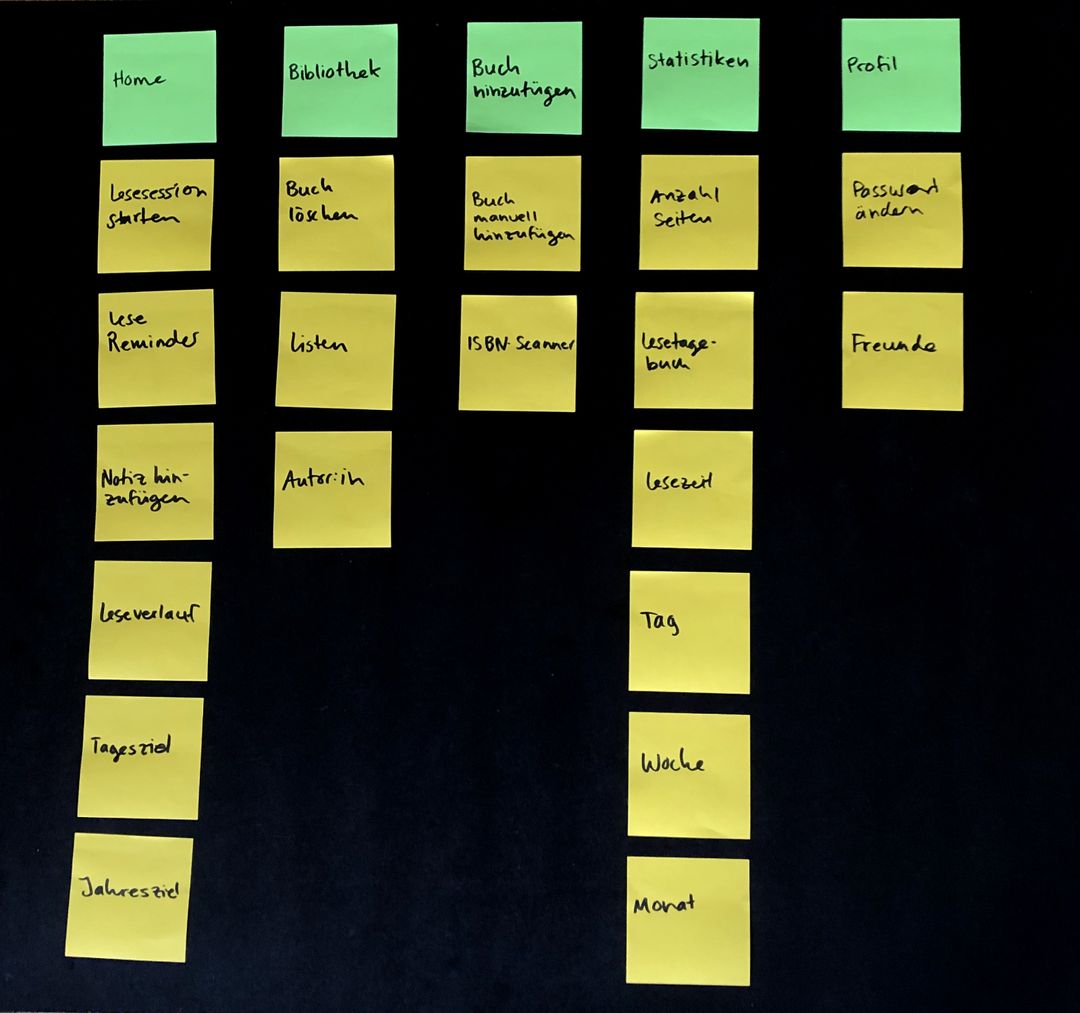 Home
Lesesession
starten
Lese
Reminder
Notiz hin-
zufügen
Leseverlauf
Tagesziel
Jahresziel
Bibliothek
Buch
löschen
Listen
Autor:in
Buch
hinzufügen
Buch
manuell
hinzufügen
ISBN-Scanner
Statistiken
Anzahl
Seiten
Lesetage-
buch
Lesezeit
Tag
Woche
Monat
Profil
Passwort
ändern
Freunde